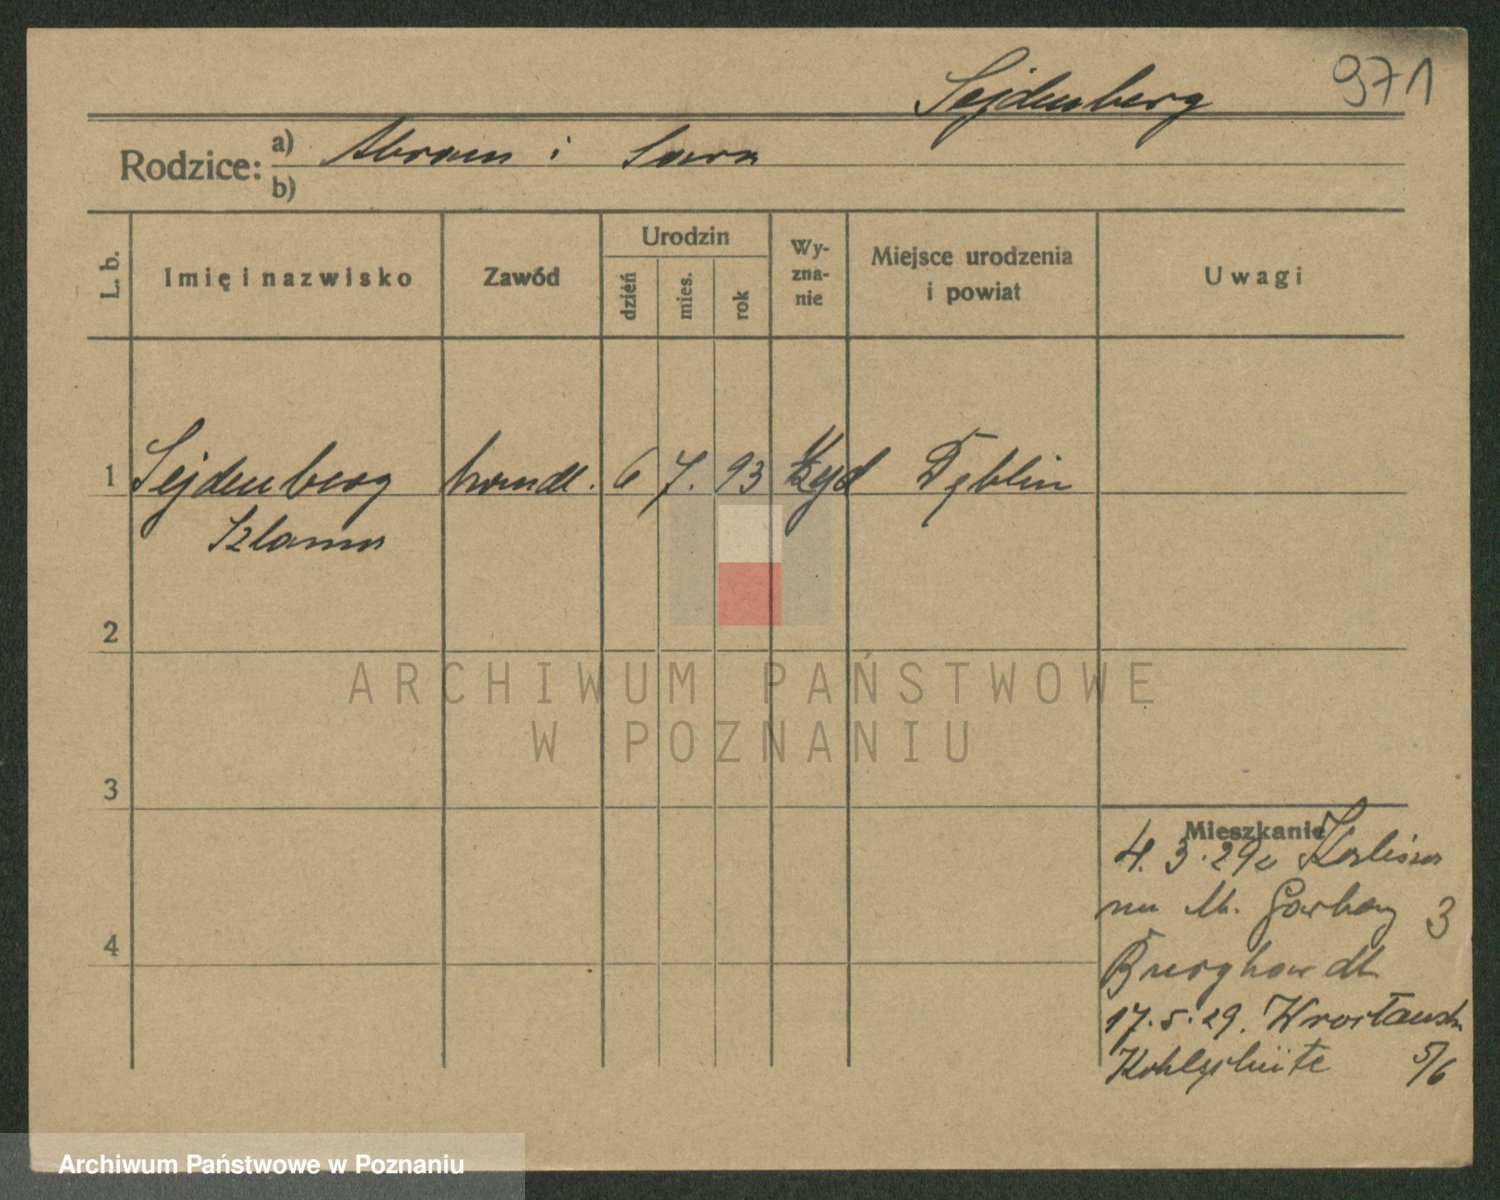 971
Sejdenberg
Rodzice: a) Abram i Sara
b)
L. b.
Imię i nazwisko
Zawód
Urodzin
dzień
mies.
rok
Wy-
zna-
nie
Miejsce urodzenia
i powiat
Uwagi
1 Sejdenberg handl. 6 7. 93 Żyd Dęblin
Szlama
2
3
4
Mieszkanie
4. 3. 29 z Kalisza
na M. Garbary 3
Burghardt
17. 5. 29. Wrocławska
5/6
ARCHIWUM PAŃSTWOWE
W POZNANIU
Archiwum Państwowe w Poznaniu